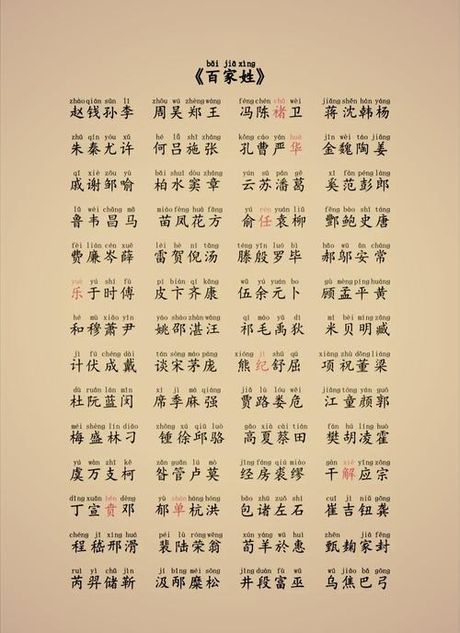 bǎi jiā xìng
《百家姓》
zhào qián sūn lǐ zhōu wú zhèng wáng féng chén chǔ wèi jiǎng shěn hán yáng
赵钱孙李 周吴郑王 冯陈褚卫 蒋沈韩杨
zhū qín yóu xǔ hé lǚ shī zhāng kǒng cáo yán huà jīn wèi táo jiāng
朱秦尤许 何吕施张 孔曹严华 金魏陶姜
qī xiè zōu yù bǎi shuǐ dòu zhāng yún sū pān gě xī fàn péng láng
戚谢邹喻 柏水窦章 云苏潘葛 奚范彭郎
lǔ wéi chāng mǎ miáo fèng huā fāng yú rén yuán liǔ fēng bào shǐ táng
鲁韦昌马 苗凤花方 俞任袁柳 酆鲍史唐
fèi lián cén xuē léi hè ní tāng téng yīn luó bì hǎo wū ān cháng
费廉岑薛 雷贺倪汤 滕殷罗毕 郝邬安常
yuè yú shí fù pí biàn qí kāng wǔ yú yuán bǔ gù mèng píng huáng
乐于时傅 皮卞齐康 伍余元卜 顾孟平黄
hé mù xiāo yǐn yáo shào zhàn wāng qí máo yǔ dí mǐ bèi míng zāng
和穆萧尹 姚邵湛汪 祁毛禹狄 米贝明臧
jì fú chéng dài tán sòng máo páng xióng jǐ shū qū xiàng zhù dǒng liáng
计伏成戴 谈宋茅庞 熊纪舒屈 项祝董梁
dù ruǎn lán mǐn xí jì má qiáng jiǎ lù lóu wēi jiāng tóng yán guō
杜阮蓝闵 席季麻强 贾路娄危 江童颜郭
méi shèng lín diāo zhōng xú qiū luò gāo xià cài tián fán hú líng huò
梅盛林刁 锺徐邱骆 高夏蔡田 樊胡凌霍
yú wàn zhī kē zǎn guǎn lú mò jīng fáng qiú miù gān xiè yīng zōng
虞万支柯 昝管卢莫 经房裘缪 干解应宗
dīng xuān bēn dèng yù shàn háng hóng bāo zhū zuǒ shí cuī jí niǔ gōng
丁宣贲邓 郁单杭洪 包诸左石 崔吉钮龚
chéng jī xíng huá péi lù róng wēng xún yáng yū huì zhēn qú jiā fēng
程嵇邢滑 裴陆荣翁 荀羊於惠 甄麹家封
ruì yì chǔ jìn jí bǐng mí sōng jǐng duàn fù wū wū jiāo bā gōng
芮羿储靳 汲邴糜松 井段富巫 乌焦巴弓